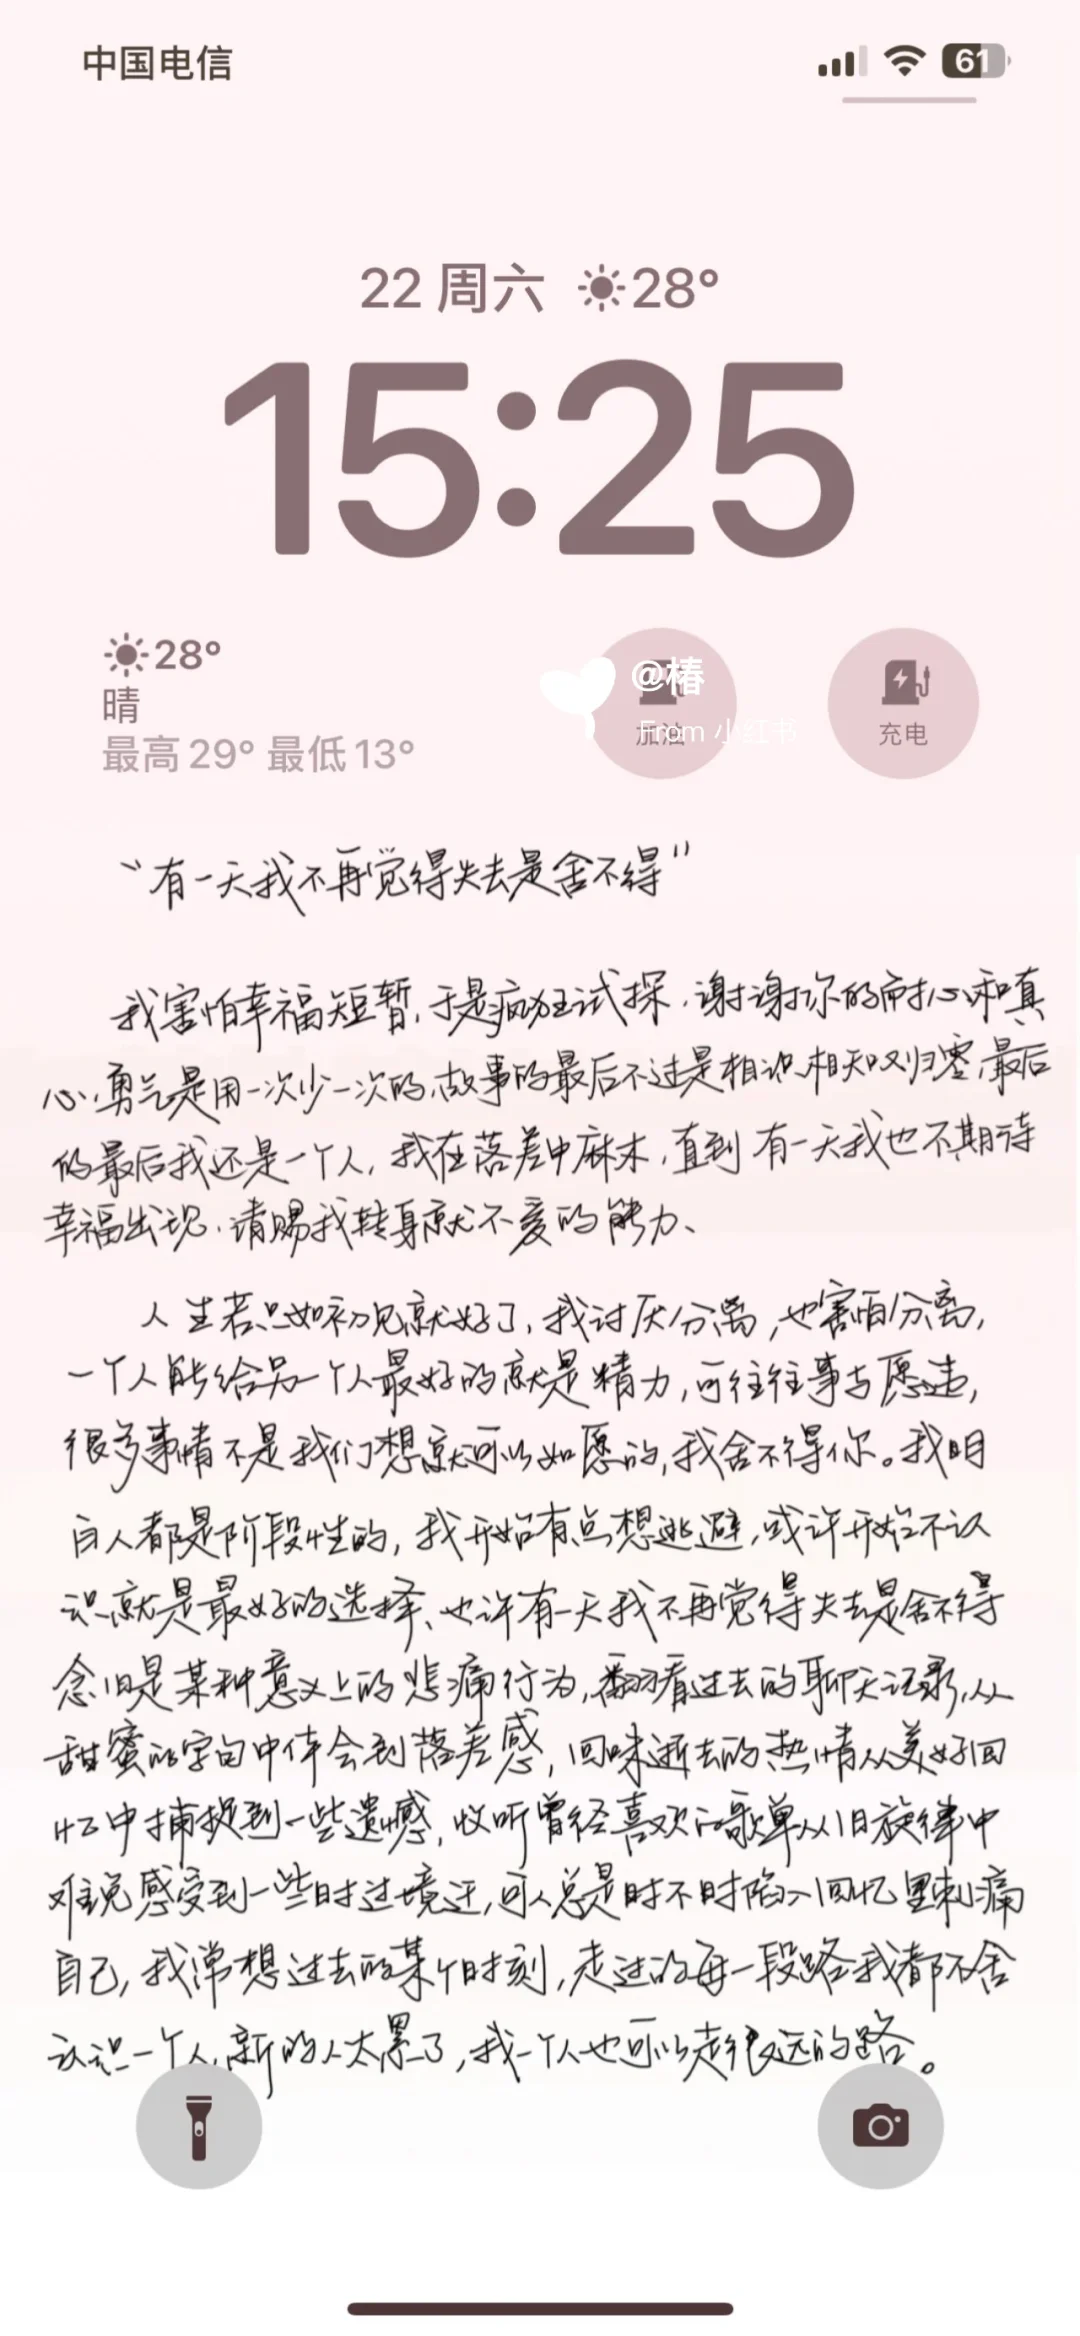 中国电信
61
22 周六 28°
15:25
28°
晴
最高29° 最低13°
@椿
From 小红书
加油
充电
“有一天我不再觉得失去是舍不得”
我害怕幸福短暂,于是疯狂试探,谢谢你的耐心和真
心,勇气是用一次少一次的,故事的最后不过是相识相知又归零,最后
的最后我还是一个人,我在落差中麻木,直到有一天我也不期待
幸福出现,请赐我转身就不爱的能力、
人生若只如初见就好了,我讨厌分离,也害怕分离,
一个人能给另一个人最好的就是精力,可往往事与愿违,
很多事情不是我们想就可以如愿的,我舍不得你。我明
白人都是阶段性的,我开始有点想逃避,或许开始不认
识就是最好的选择、也许有一天我不再觉得失去是舍不得
念旧是某种意义上的悲痛行为,翻看过去的聊天记录,从
甜蜜的字句中体会到落差感,回味逝去的热情从美好回
忆中捕捉到一些遗憾,收听曾经喜欢的歌单从旧旋律中
难免感受到一些时过境迁,可人总是时不时陷入回忆里刺痛
自己,我常想过去的某个时刻,走过的每一段路我都不舍
认识一个人,新的人太累了,我一个人也可以走很远的路。